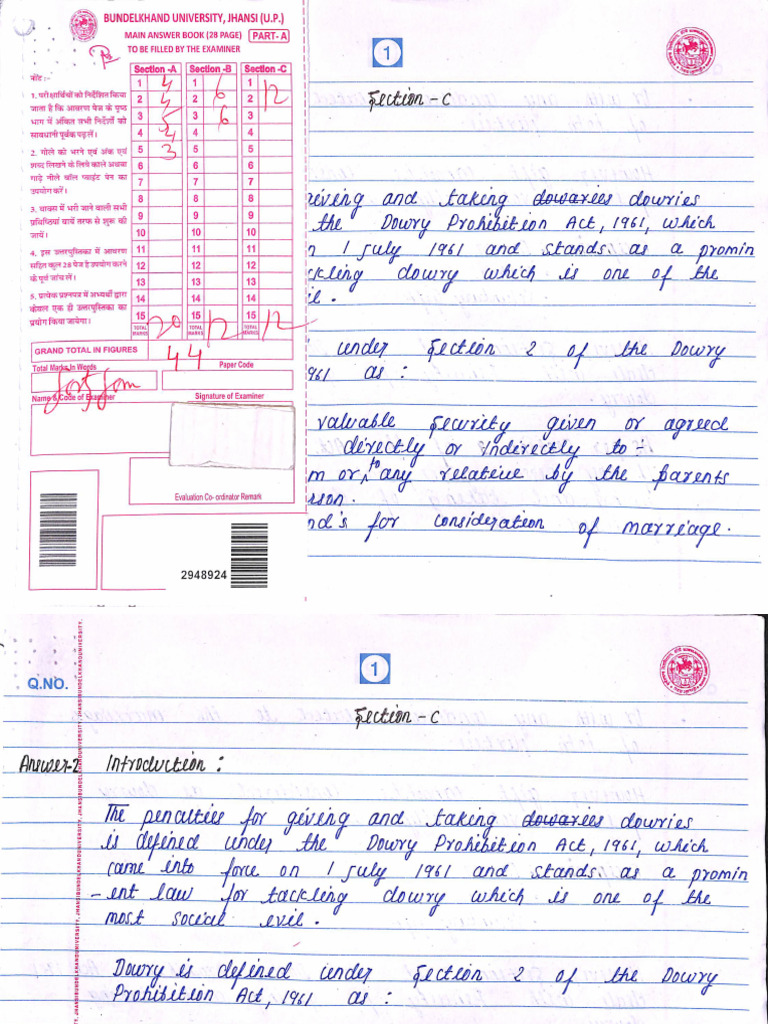 BUNDELKHAND UNIVERSITY, JHANSI (U.P.)
MAIN ANSWER BOOK (28 PAGE) PART- A
TO BE FILLED BY THE EXAMINER
नोट :-
1. परीक्षार्थियों को निर्देशित किया
जाता है कि आवरण पेज के पृष्ठ
भाग में अंकित सभी निर्देशों को
सावधानी पूर्वक पढ़लें।
2. गोले को भरने एवं अंक एवं
शब्द लिखने के लिये काले अथवा
गाढ़े नीले बॉल प्वाइंट पेन का
उपयोग करें।
3. बाक्स में भरी जाने वाली सभी
प्रविष्टियां बायें तरफ से शुरू की
जायें।
4. इस उत्तरपुस्तिका में आवरण
सहित कुल 28 पेज है उपयोग करने
के पूर्व जांच लें।
5. प्रत्येक प्रश्नपत्र में अभ्यर्थी द्वारा
केवल एक ही उत्तरपुस्तिका का
प्रयोग किया जायेगा।
Section -A Section -B Section -C
1 4 1 6 1 12
2 4 2 2
3 5 3 6 3
4 4 4 4
5 3 5 5
6 6 6
7 7 7
8 8 8
9 9 9
10 10 10
11 11 11
12 12 12
13 13 13
14 14 14
15 15 15
TOTAL MARKS 20 TOTAL MARKS 12 TOTAL MARKS 12
GRAND TOTAL IN FIGURES 44
Total Marks In Words Paper Code
Name & Code of Examiner Signature of Examiner
Evaluation Co- ordinator Remark
2948924
1
Section - C
giving and taking dowaries dowries
the Dowry Prohibition Act, 1961, which
n 1 July 1961 and stands as a promin
tackling dowry which is one of the
il.
under Section 2 of the Dowry
961 as :
valuable security given or agreed
directly or indirectly to -
m or to any relative by the parents
rson.
nd's for consideration of marriage.
1
Q.NO.
Section - C
Answer-2 Introduction :
The penalties for giving and taking dowaries dowries
is defined under the Dowry Prohibition Act, 1961, which
came into force on 1 July 1961 and stands as a promin
- ent law for tackling dowry which is one of the
most social evil.
Dowry is defined under Section 2 of the Dowry
Prohibition Act, 1961 as :